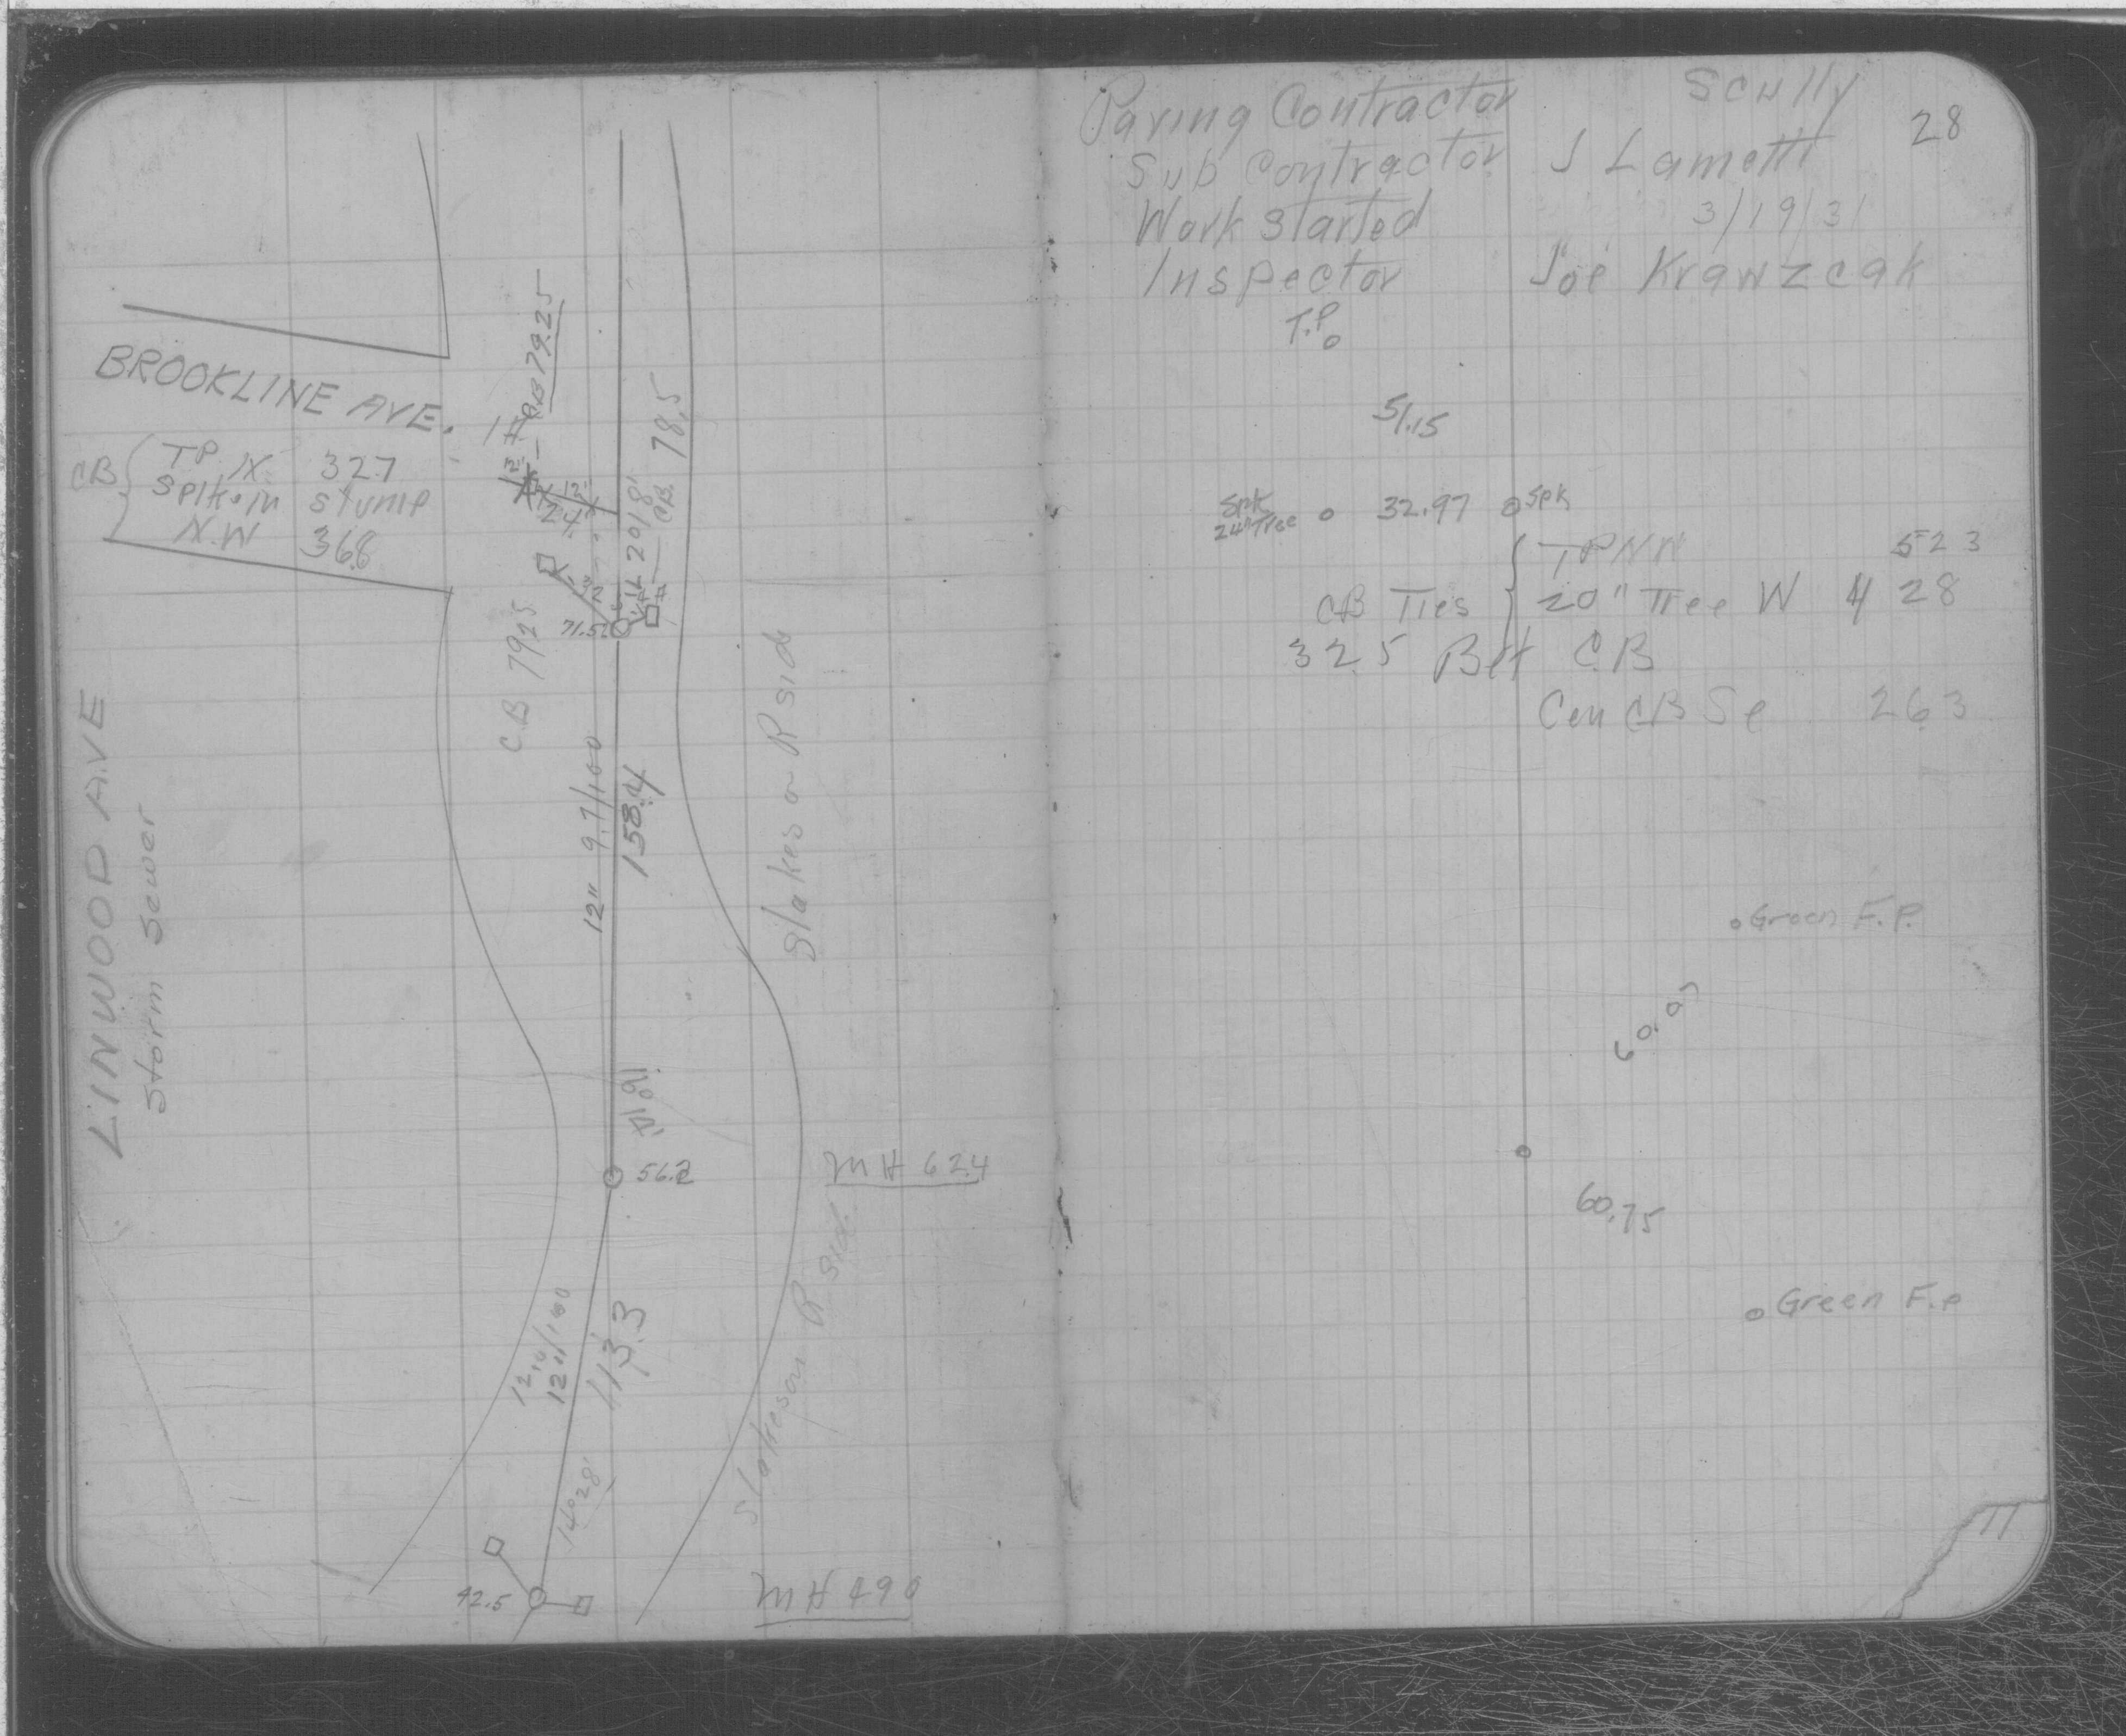 BROOKLINE AVE.
CB
TP IX 32.7
Spike in stump
N.W 36.8
LINWOOD AVE
Storm Sewer
CB 79.25
24"
CB. 78.5
71.5
C.B 79.25
12" 9.7/100
158.4
stakes on R side
56.2
MH 62.4
113.3
14°28'
R side
42.5
MH 49.0
Paving Contractor Scully
28
Sub Contractor J Lametti
Work Started 3/19/31
Inspector Joe Krawzcak
T.P.
51.15
Spk
24" Tree
32.97
Spk
CB Ties
TP NW 523
20" Tree W 428
325 Bet CB
Cen CB Se 263
Green F.P.
60.
60.75
Green F.P